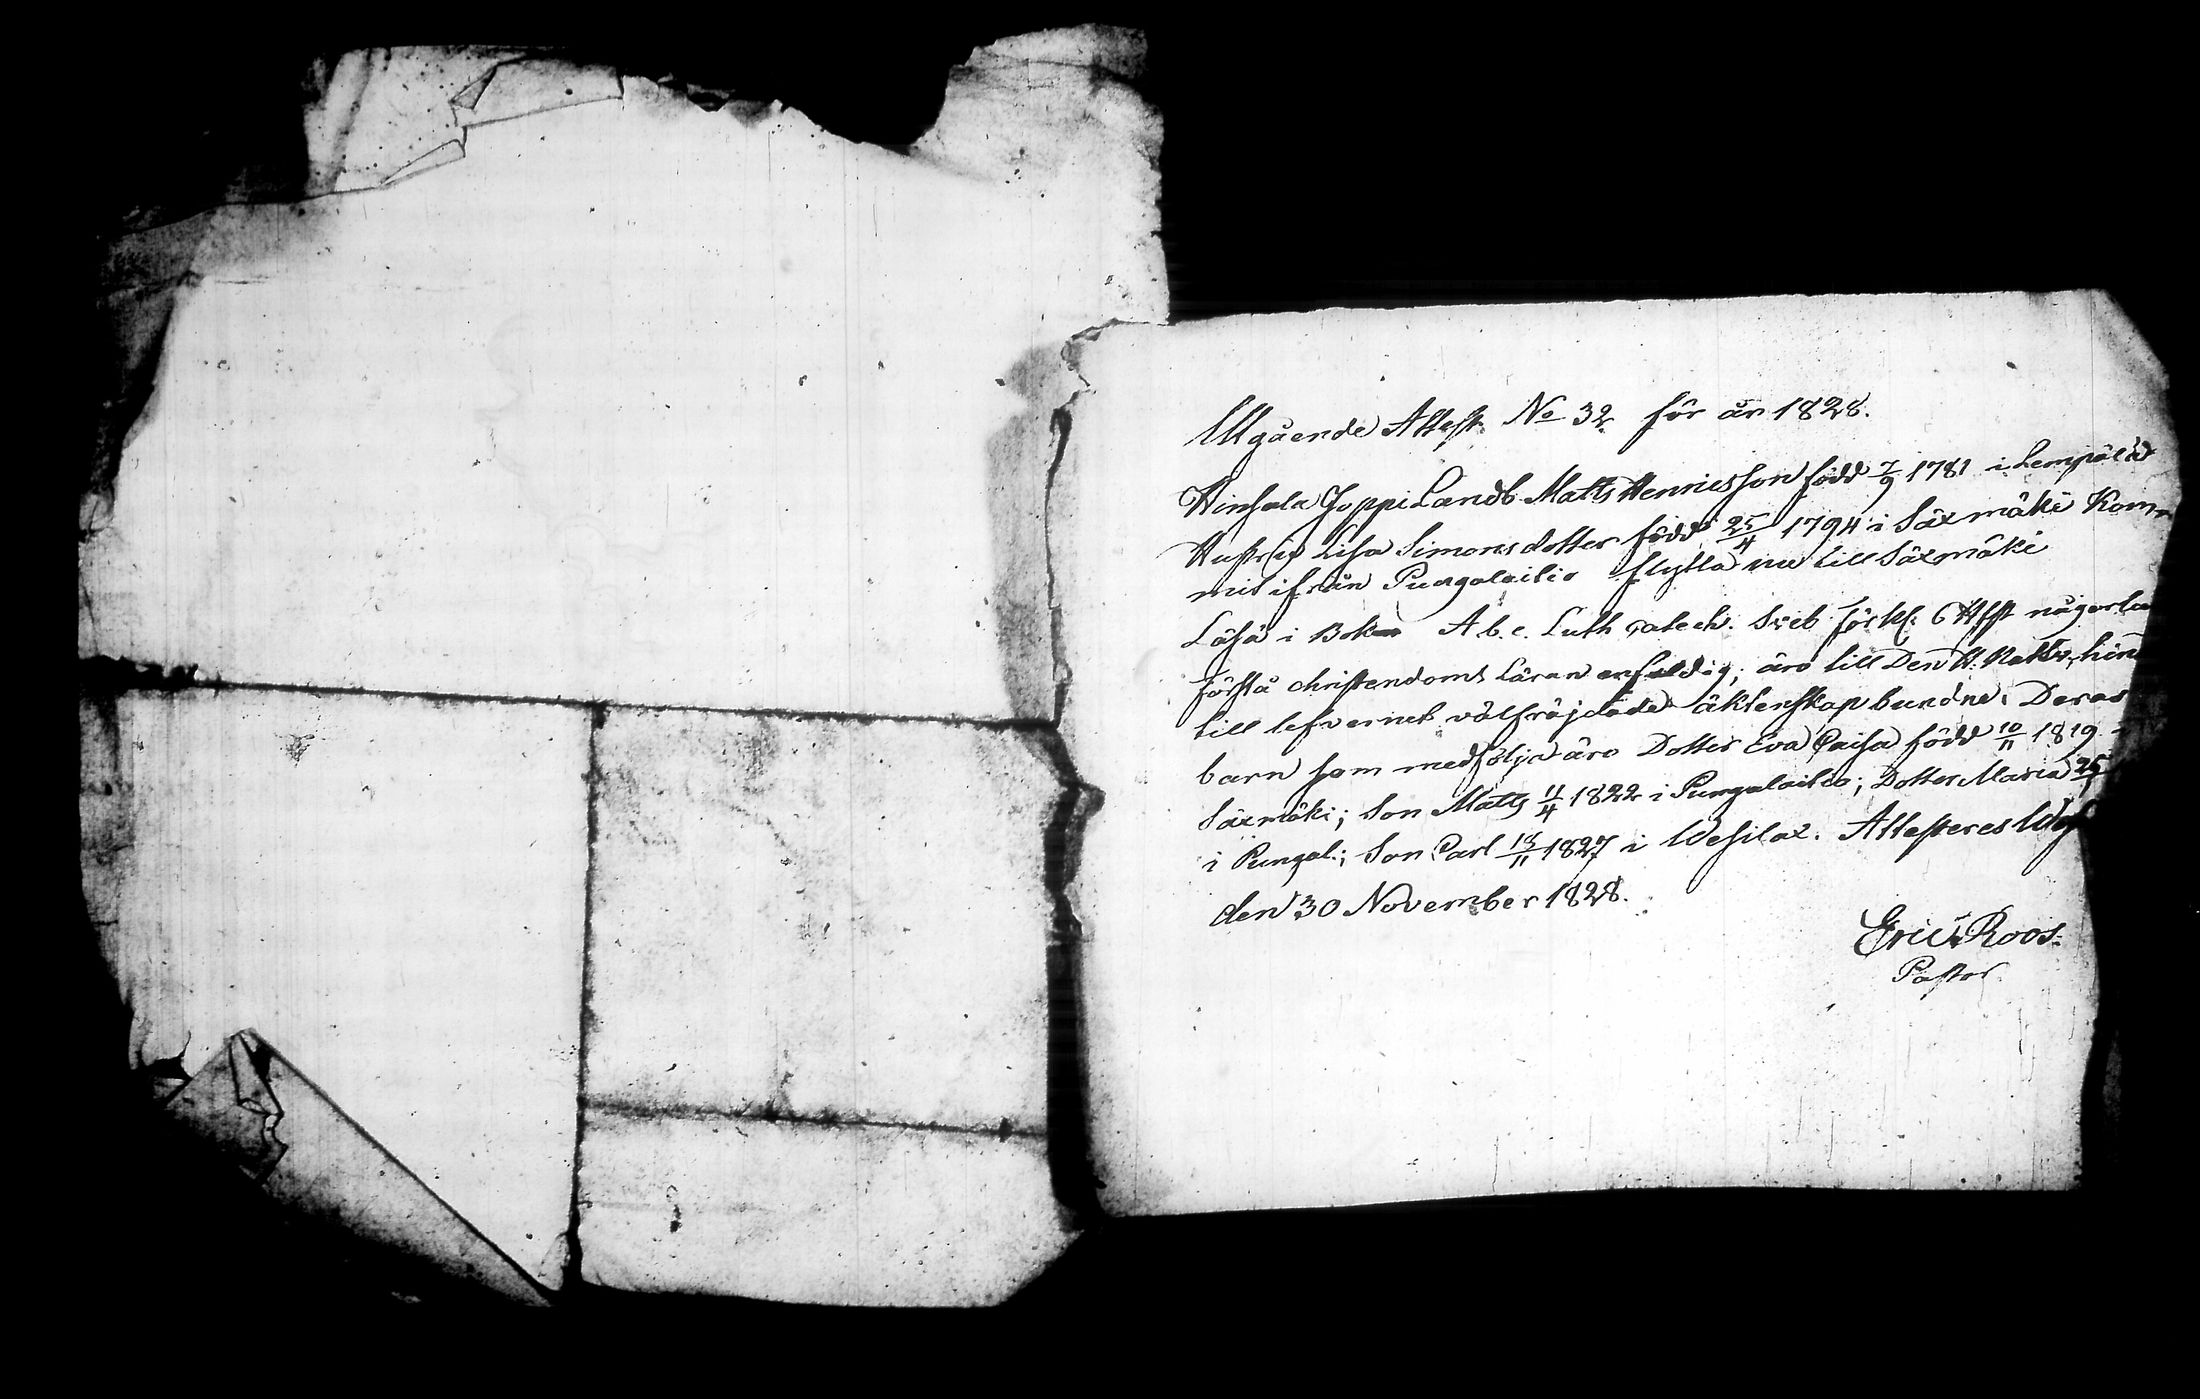 Utgående Attest No 32 för år 1828.
Hinsala Joppi Landb. Matts Henricsson född 7/9 1781 i Lempälä
Hustru Lisa Simonsdotter född 25/4 1794 i Säxmäki Kom
mit ifrån Pungalaitio flytta nu till Säxmäki
Läsa i Bok A.b.c. Luth catech. Sveb. förkl. någorlu
förstå christendoms läran enfeldig; äro till Den H. Nattv.
till lefvernet välfräjdade äktenskap bundne. Deras
barn som medfölja äro Dotter Eva Caisa född 10/11 1819
Säxmäki; Son Matts 11/4 1822 i Pungalaitio; Dotter Maria 25
i Pungal.; Son Carl 18/11 1827 i Wesilax. Attesteres
den 30 November 1828.
Eric Roos.
Pastor.